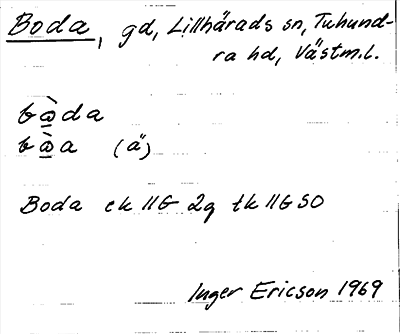 Boda, gd, Lillhärads sn, Tuhund-
ra hd, Västm.l.
bò̲da
bò̲a (ä)
Boda ek 11G 2g tk 11G SO
Inger Ericson 1969